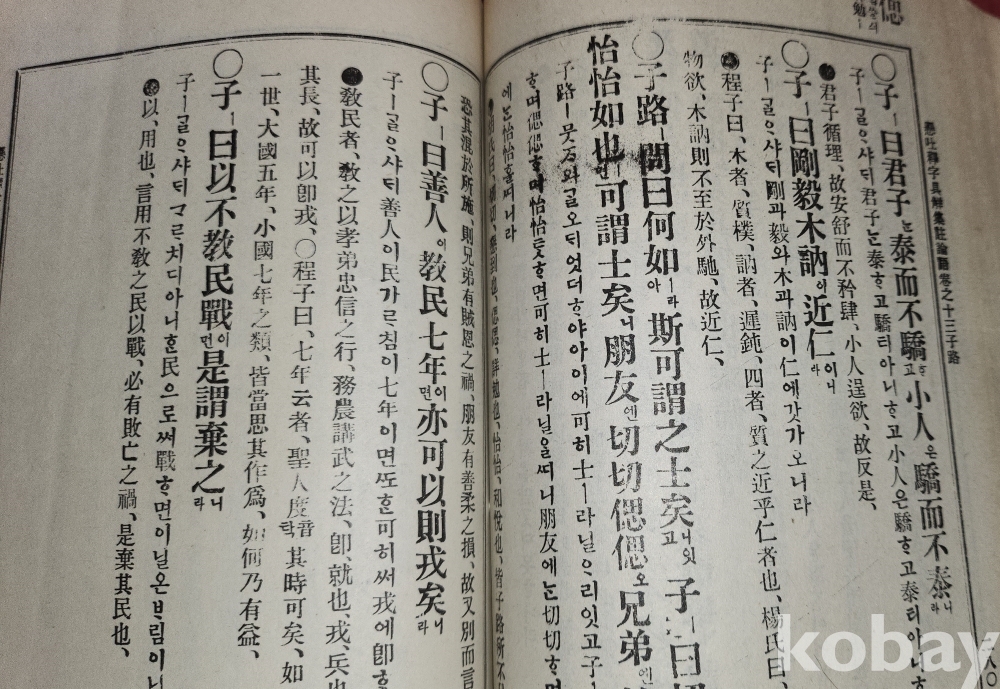 偲
懸吐釋字具解集註論語卷之十三 子路
○子ㅣ曰君子는泰而不驕ᄒᆞ고小人은驕而不泰니라
子ㅣᄀᆞᆯᄋᆞ샤ᄃᆡ君子ᄂᆞᆫ泰ᄒᆞ고驕티아니ᄒᆞ고小人은驕ᄒᆞ고泰티아니
●君子循理、故安舒而不矜肆、小人逞欲、故反是、
○子ㅣ曰剛毅木訥이近仁이니라
子ㅣᄀᆞᆯᄋᆞ샤ᄃᆡ剛과毅와木과訥이仁에갓가오니라
●程子曰、木者、質樸、訥者、遲鈍、四者、質之近乎仁者也、楊氏曰、
物欲、木訥則不至於外馳、故近仁、
○子路ㅣ問曰何如ㅣ라아斯可謂之士矣니잇고子ㅣ曰切
怡怡如也ㅣ면可謂士矣니朋友엔切切偲偲오兄弟엔
子路ㅣ뭇ᄌᆞ와ᄀᆞᆯ오ᄃᆡ엇더ᄒᆞ야아이에可히士ㅣ라닐ᄋᆞ리잇고子ㅣ
ᄒᆞ며偲偲ᄒᆞ며怡怡ᄐᆞᆺᄒᆞ면可히士ㅣ라닐ᄋᆞᆯ찌니朋友에ᄂᆞᆫ切切ᄒᆞ
에ᄂᆞᆫ怡怡홀찌니라
胡氏曰、切切、懇到也、偲偲、詳勉也、怡怡、和悅也、皆子路所不
恐其混於所施、則兄弟有賊恩之禍、朋友有善柔之損、故又別而言
○子ㅣ曰善人이敎民七年이면亦可以卽戎矣니라
子ㅣᄀᆞᆯᄋᆞ샤ᄃᆡ善人이民가ᄅᆞ침이七年이면ᄯᅩᄒᆞᆫ可히써戎에卽ᄒᆞ
●敎民者、敎之以孝弟忠信之行、務農講武之法、卽、就也、戎、兵也
其長、故可以卽戎、○程子曰、七年云者、聖人度音탁其時可矣、如
一世、大國五年、小國七年之類、皆當思其作爲、如何乃有益、
○子ㅣ曰以不敎民戰이면是謂棄之니라
子ㅣᄀᆞᆯᄋᆞ샤ᄃᆡᄀᆞᄅᆞ치디아니ᄒᆞᆫ民으로써戰ᄒᆞ면이닐온ᄇᆞ림이니
●以、用也、言用不敎之民以戰、必有敗亡之禍、是棄其民也、
kobay